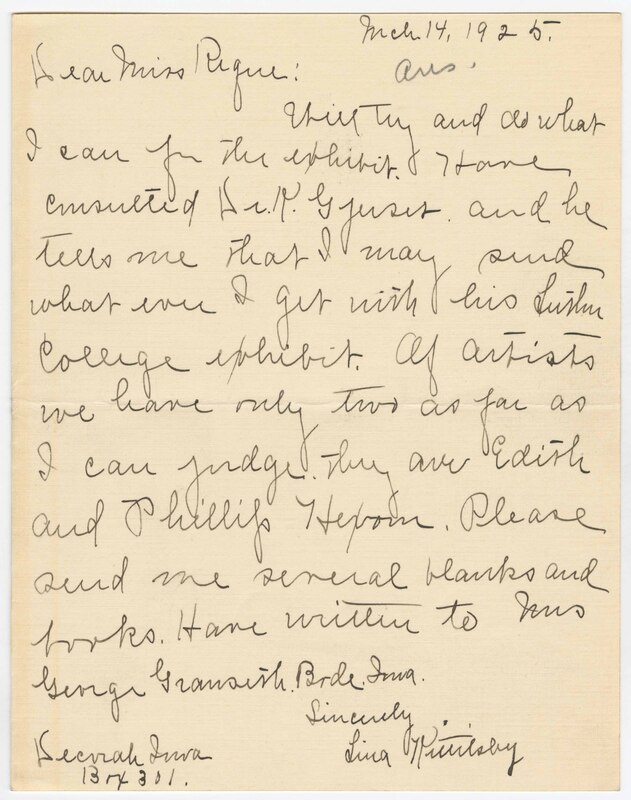 Mch. 14, 1925.
Dear Miss Rygue:
Ans.
Will try and do what
I can for the exhibit. Have
consulted Dr. K. Gjerset. and he
tells me that I may send
what ever I get with his Luther
College exhibit. Of artists
we have only two as far as
I can judge. they are Edith
and Phillip Hexom. Please
send me several blanks and
books. Have written to Mrs
George Gransith. Bode. Iowa.
Sincerely
Lina Kittilsby
Decorah Iowa
Box 301.